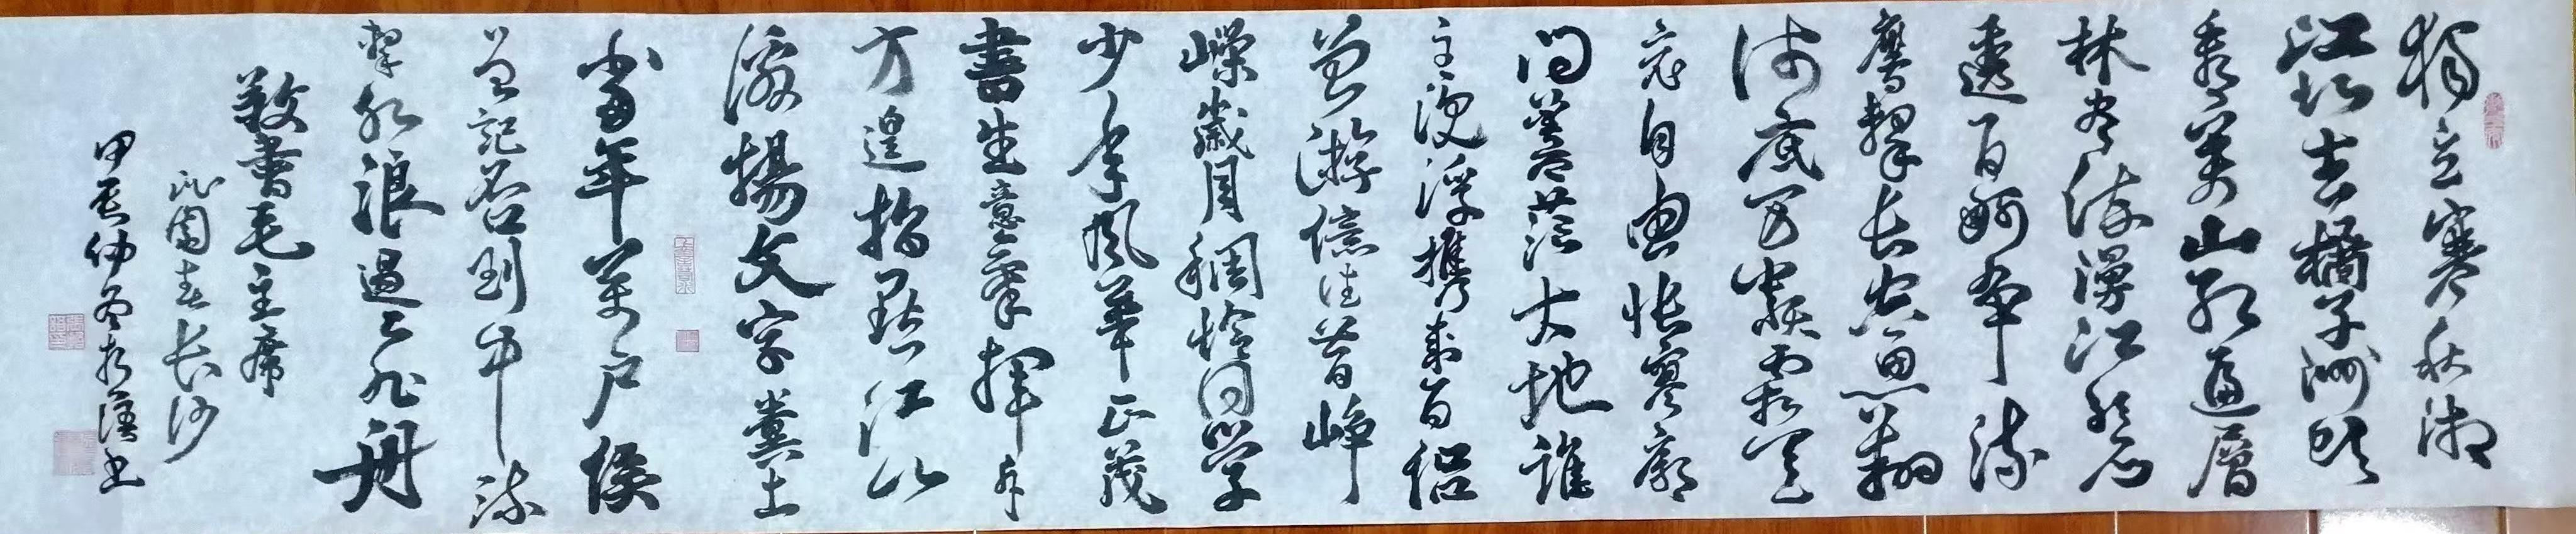 獨立寒秋湘
江北去橘子洲頭
看萬山紅遍層
林盡染漫江碧
透百舸爭流
鷹擊長空魚翔
浅底万類霜天
竞自由悵寥廓
问蒼茫大地誰
主沉浮攜来百侣
曾游憶往昔崢
嶸歲月稠恰同学
少年风華正茂
書生意氣揮斥
方遒指点江山
激揚文字糞土
当年萬户侯
曾記否到中流
擊水浪遏飞舟
敬書毛主席
沁園春长沙
甲辰仲冬書